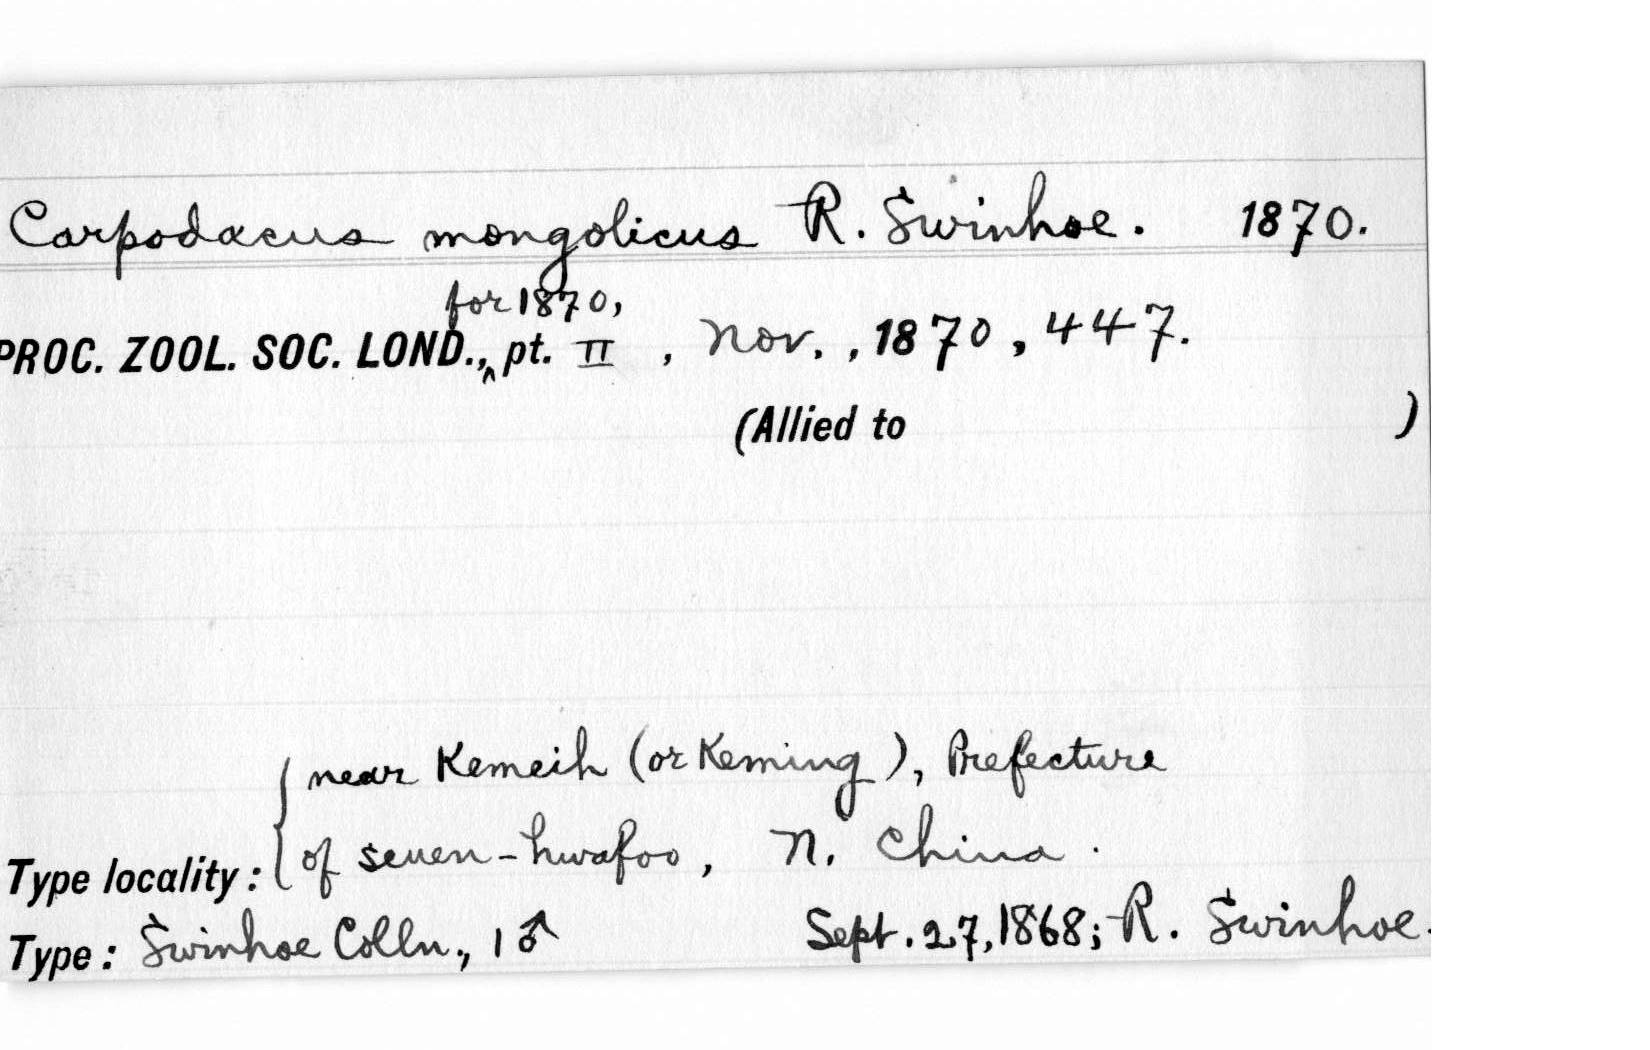 Carpodacus mongolicus R. Swinhoe. 1870.
for 1870,
PROC. ZOOL. SOC. LOND.,^ pt. II , Nov. , 1870 , 447.
(Allied to )
near Kemeih (or Keming), Prefecture
of seuen-hwafoo, N. China.
Type locality:
Type: Swinhoe Colln., 1 ♂ Sept. 27, 1868; R. Swinhoe.